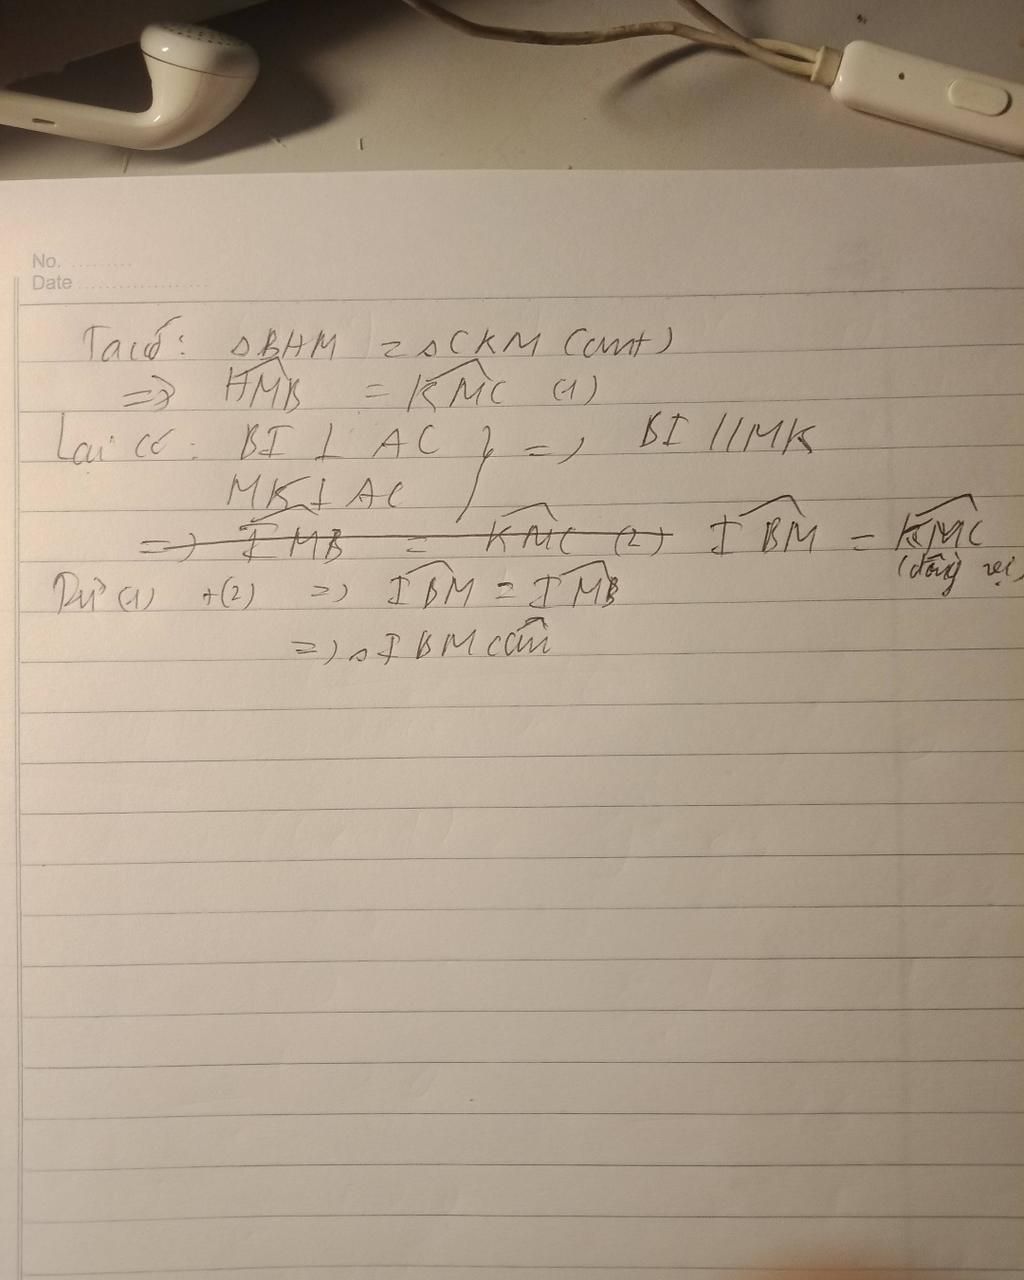 No. .........
Date ...................
Ta có: ΔBHM = ΔCKM (cmt)
=> HMB = KMC (1)
Lại có: BI ⊥ AC } => BI // MK
MK ⊥ AC
=> IMB = KMC (2) IBM = KMC
(đồng vị)
Từ (1) + (2) => IBM = IMB
=> ΔIBM cân